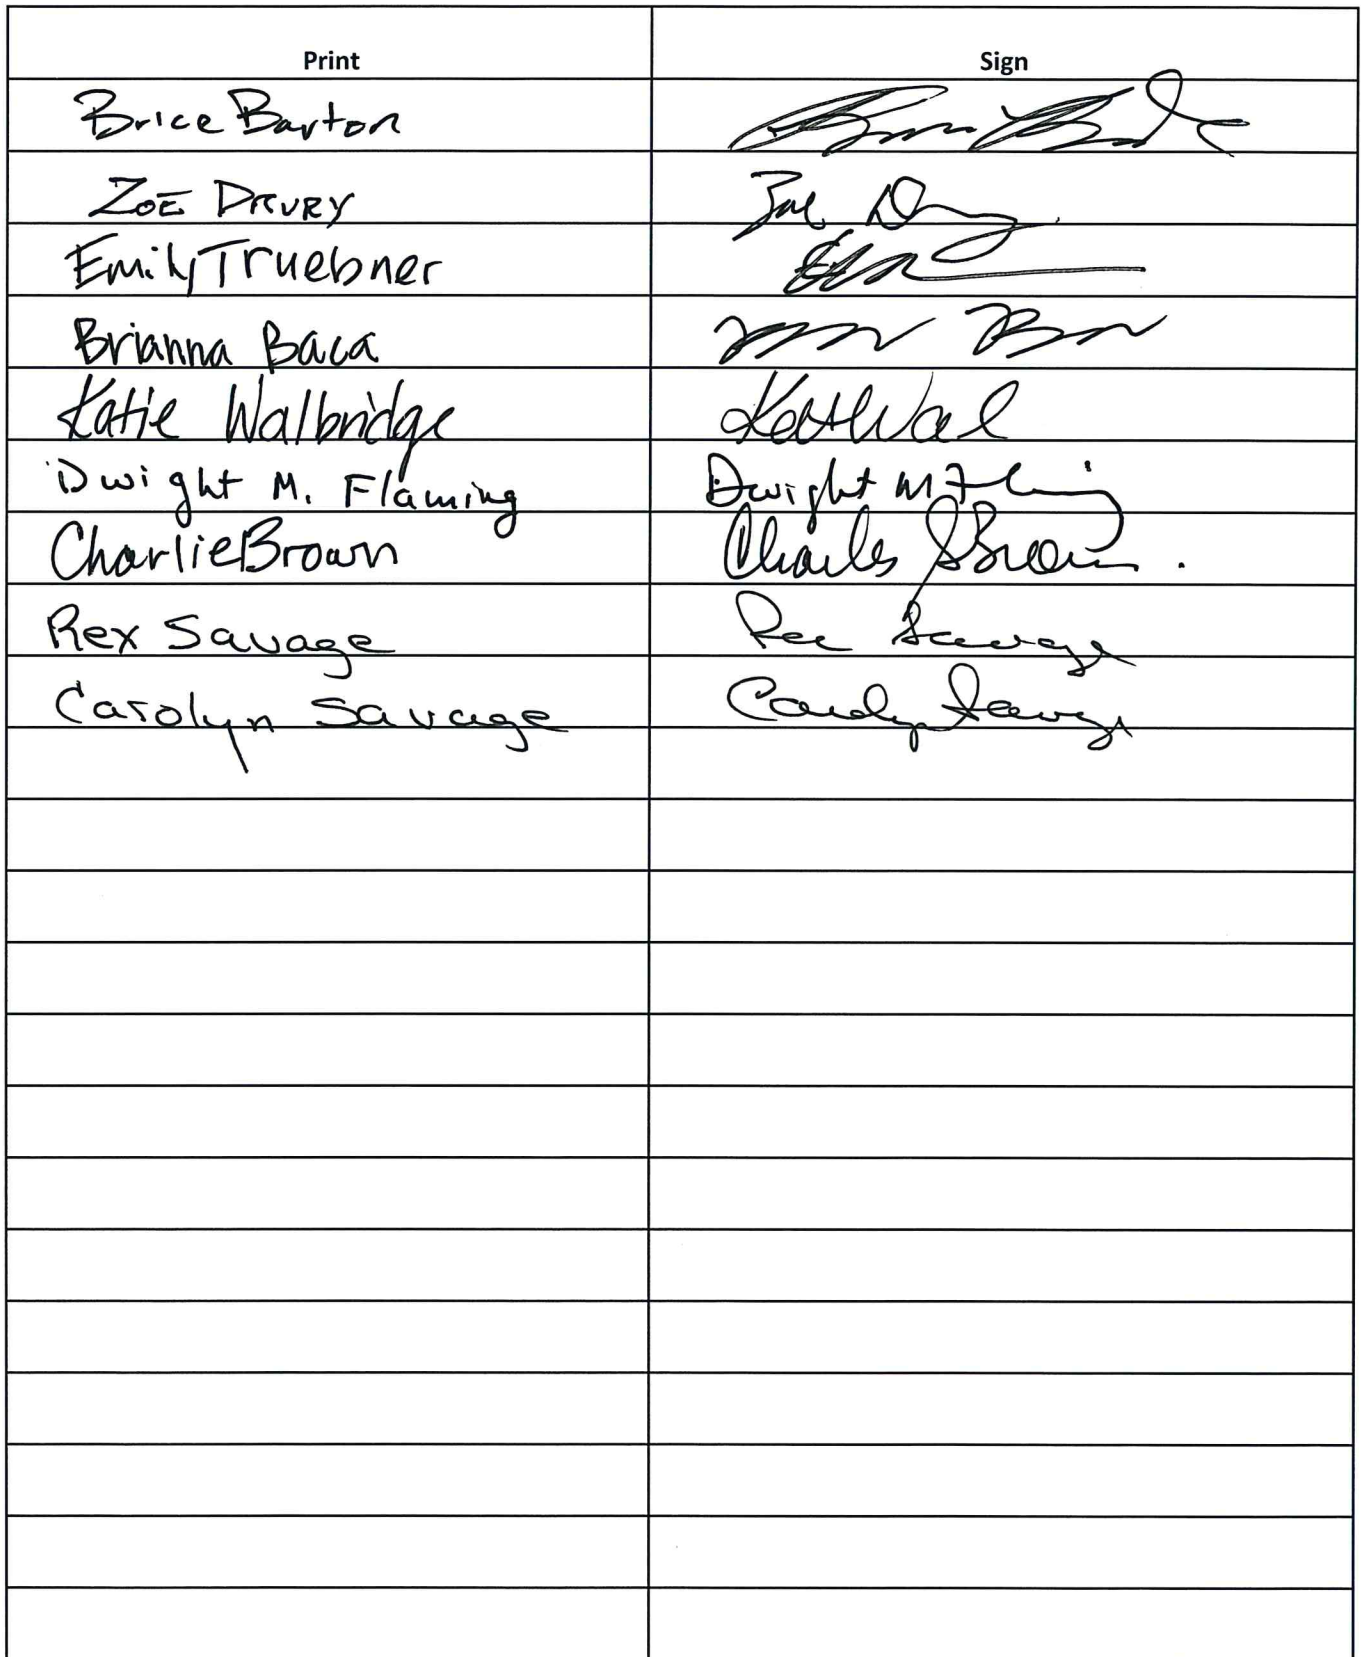 Print Sign
Brice Barton
ZOË DRURY Zoe
Emily Truebner
Brianna Baca
Katie Walbridge
Dwight M. Flaming Dwight M Flaming
Charlie Brown Charles Brown.
Rex Savage Rex Savage
Carolyn Savage Carolyn Savage